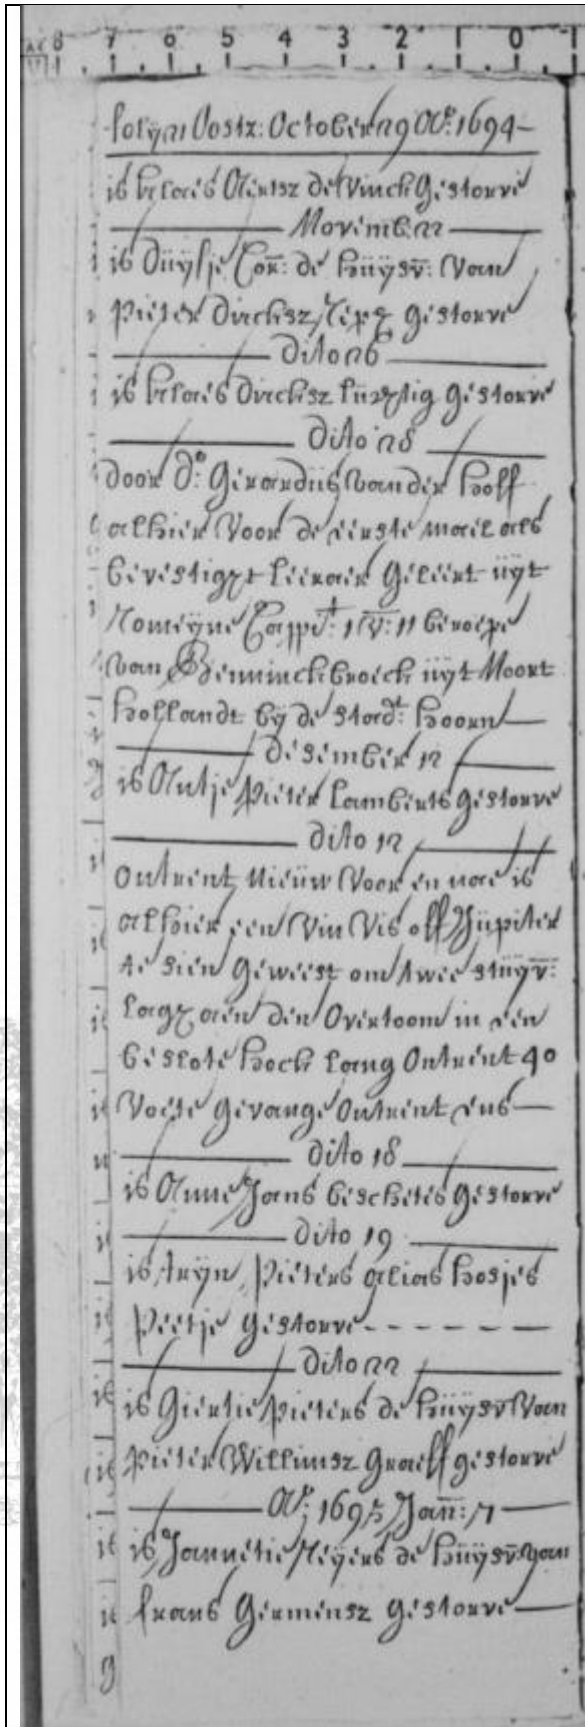 8 7 6 5 4 3 2 1 0
Oostz: October 29 Ao: 1694
is Klaes Aerisz de Vinck Gestorve
Novemb: 22
is Duijfje Cor: de huijsv: Van
Pieter Dircksz gestorve
dito 26
is Klaes Dircksz gestorve
dito 28
door do: Gerardus vander hoff
alhier voor de eerste mael als
bevestigt leeraer Geleert uijt
Romeijne Cappit: 1 v: 11 beroepe
van Benninckbroeck uijt Noort
hollandt bij de stadt: hoorn
desember 12
is Antje Pieter Lamberts gestorve
dito 12
Ontrent Nieuw Voor en nae is
alhier een Vin Vis off Jupiter
te sien geweest om twee stuijv:
lagh aen den Overtoom in een
beslote hock lang Ontrent 40
Voete gevange Ontrent ens
dito 18
is Anne Jans beschetes gestorve
dito 19
is trijn Pieters alias hosjes
Peetje gestorve
dito 22
is Giertie Pieters de huijsv Van
Pieter Willimsz Graeff gestorve
Ao: 1695 Jan: 7
is Jannetie Meijers de huijsv: van
frans Germensz gestorve